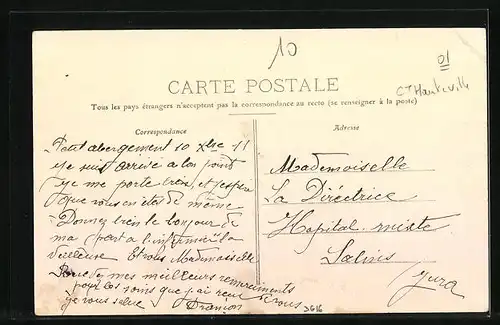 10
01
Ct Hauteville
CARTE POSTALE
Tous les pays étrangers n'acceptent pas la correspondance au recto (se renseigner à la poste)
Correspondance
Adresse
Petit abergement 10 Xbre 11
je suis arrivé a bon port
je me porte bien, et j'espère
que vous en êtes de même
Donnez bien le bonjour de
ma part a l'infirmière la
veilleuse Et vous Mademoiselle
mes meilleurs remerciments
pour les soins que j'ai reçu
de vous
je vous salue
Mademoiselle
La Diréctrice
Hopital mixte
Salins
Jura
3616